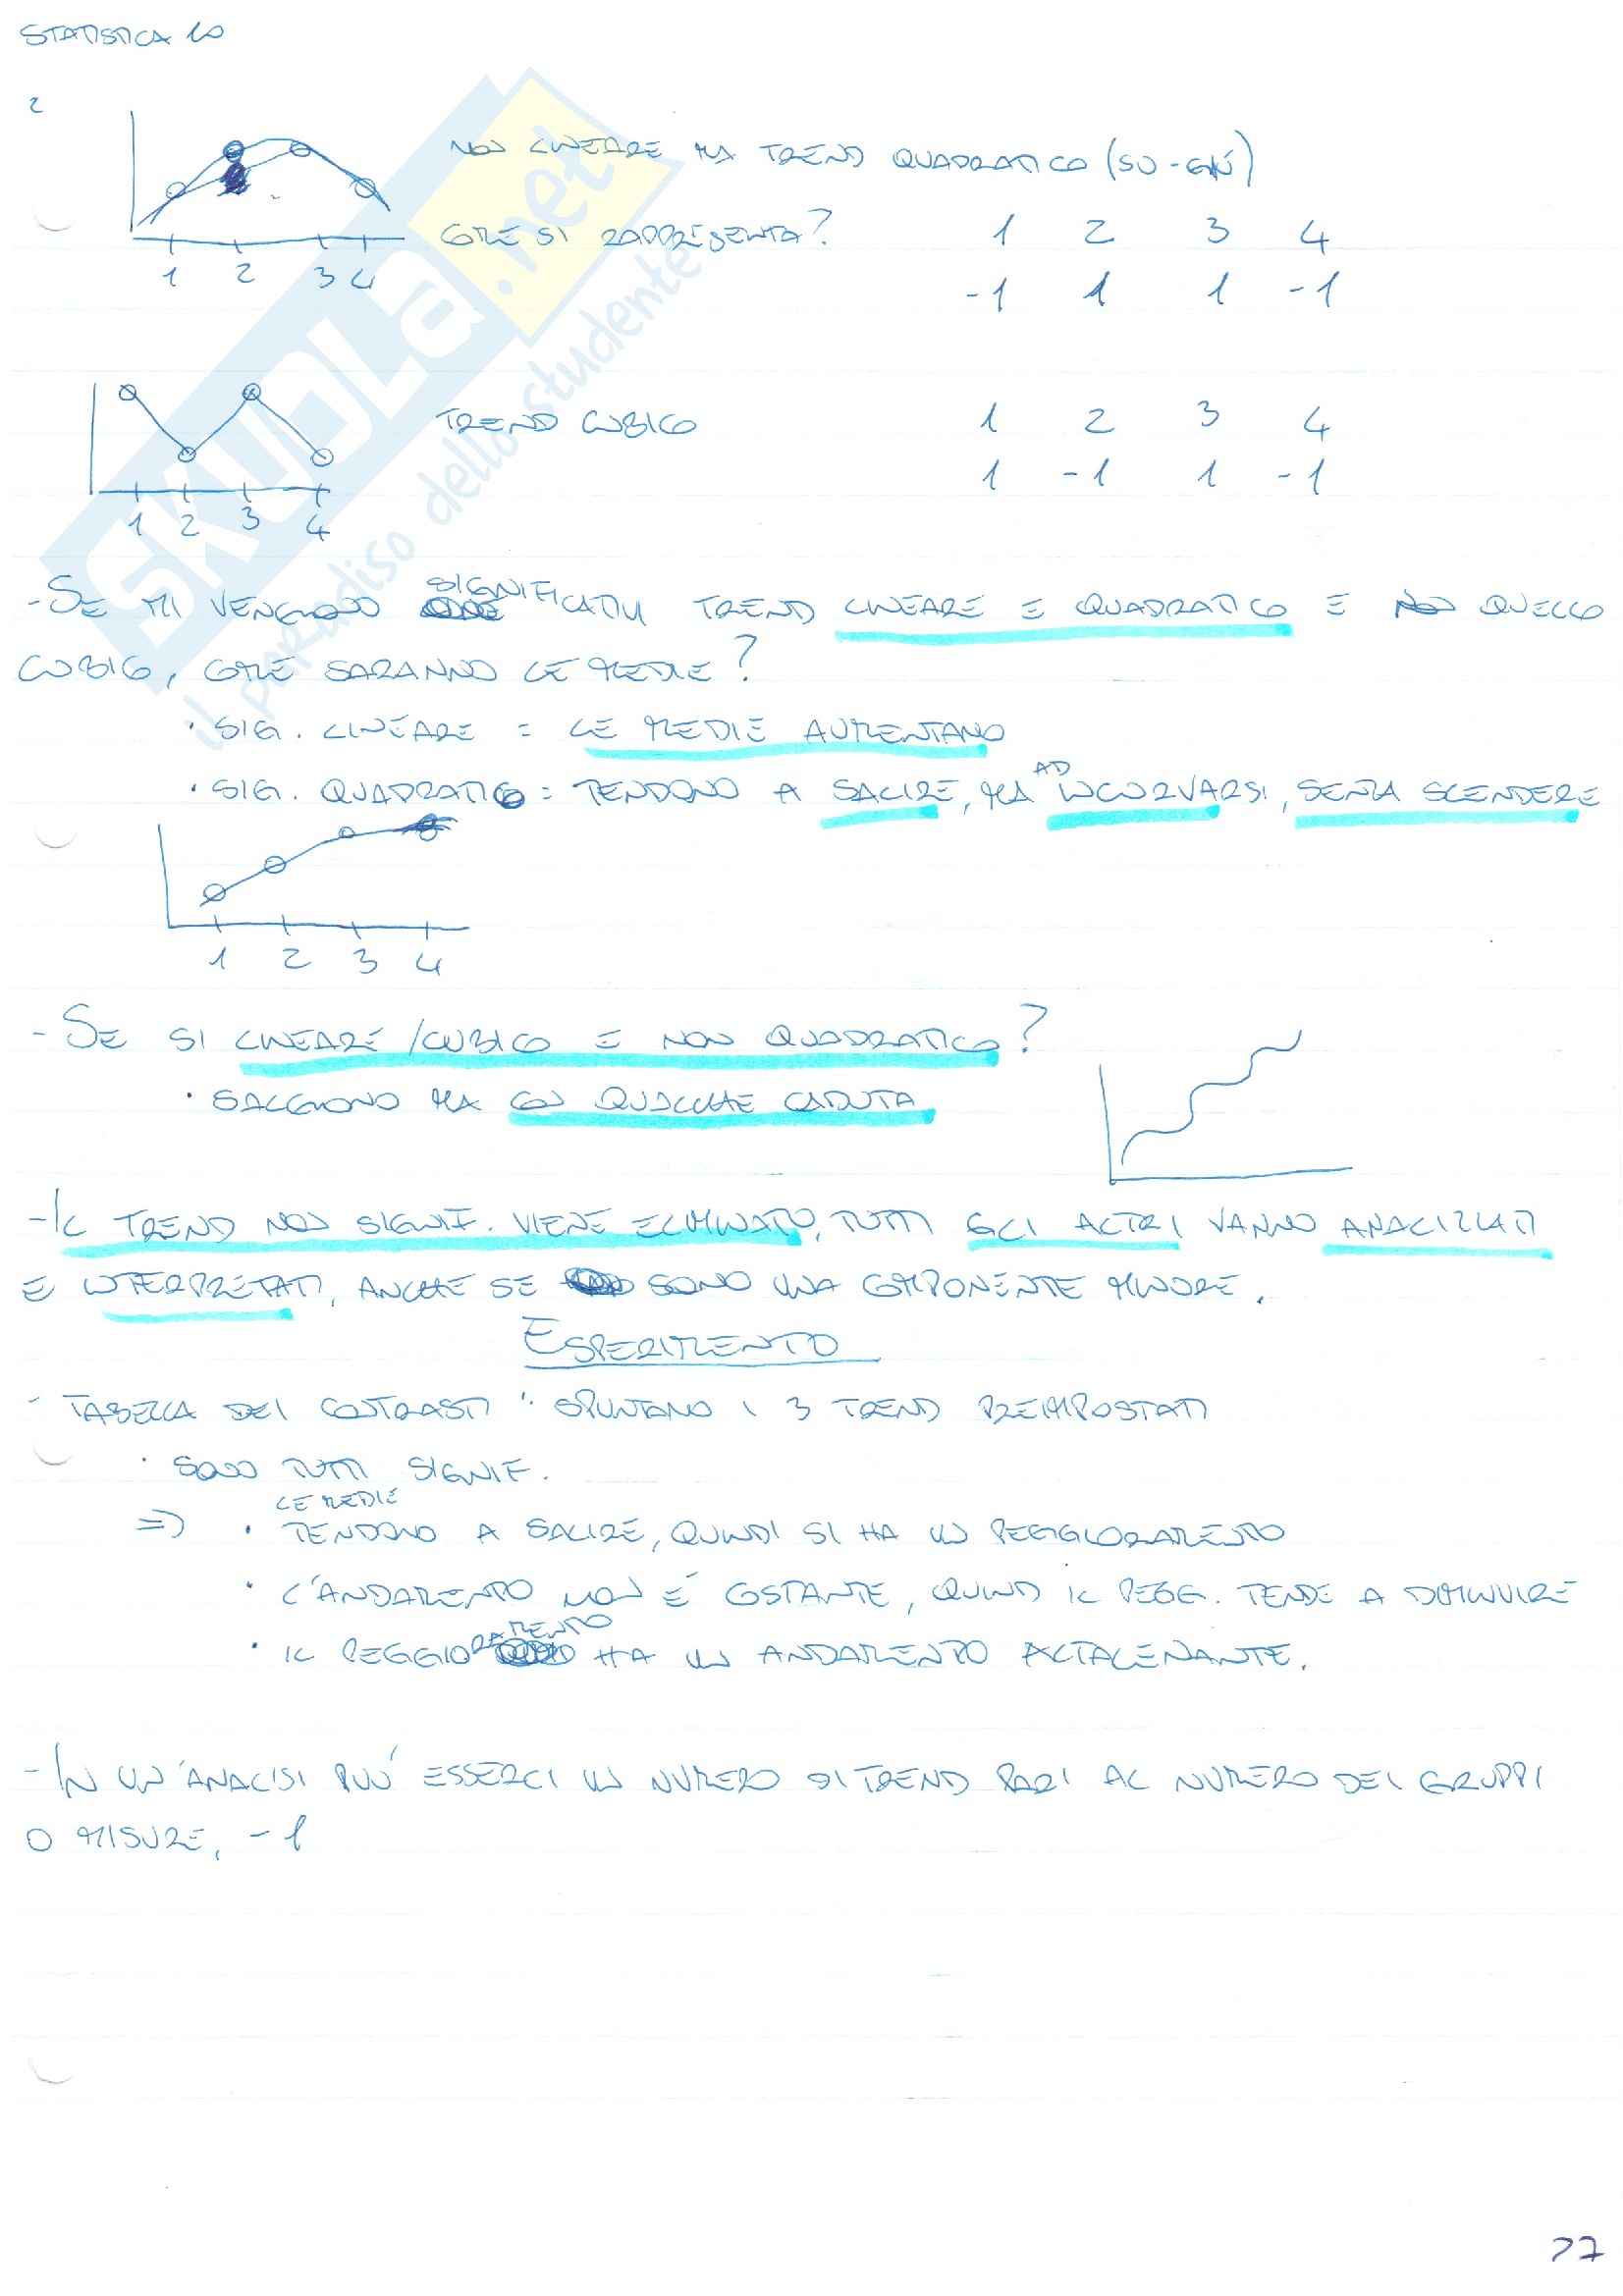 STATISTICA 10
2
NON LINEARE MA TREND QUADRATICO (SU-GIÙ)
COME SI RAPPRESENTA? 1 2 3 4
-1 1 1 -1
1 2 3 4
TREND CUBICO 1 2 3 4
1 -1 1 -1
1 2 3 4
- SE MI VENGONO SIGNIFICATIVI TREND LINEARE E QUADRATICO E NON QUELLO
CUBICO, COME SARANNO LE MEDIE?
• SIG. LINEARE = LE MEDIE AUMENTANO
• SIG. QUADRATICO = TENDONO A SALIRE, MA AD INCURVARSI, SENZA SCENDERE
1 2 3 4
- SE SI LINEARE/CUBICO E NON QUADRATICO?
• SALGONO MA CON QUALCHE CADUTA
- IL TREND NON SIGNIF. VIENE ELIMINATO, TUTTI GLI ALTRI VANNO ANALIZZATI
E INTERPRETATI, ANCHE SE SONO UNA COMPONENTE MINORE.
ESPERIMENTO
- TABELLA DEI CONTRASTI: SPUNTANO I 3 TREND PREIMPOSTATI
• SONO TUTTI SIGNIF.
=> • LE MEDIE TENDONO A SALIRE, QUINDI SI HA UN PEGGIORAMENTO
• L'ANDAMENTO NON È COSTANTE, QUINDI IL PEGG. TENDE A DIMINUIRE
• IL PEGGIORAMENTO HA UN ANDAMENTO ALTALENANTE.
- IN UN'ANALISI PUÒ ESSERCI UN NUMERO DI TREND PARI AL NUMERO DEI GRUPPI
O MISURE, -1
SKUOLA.net
il paradiso dello studente